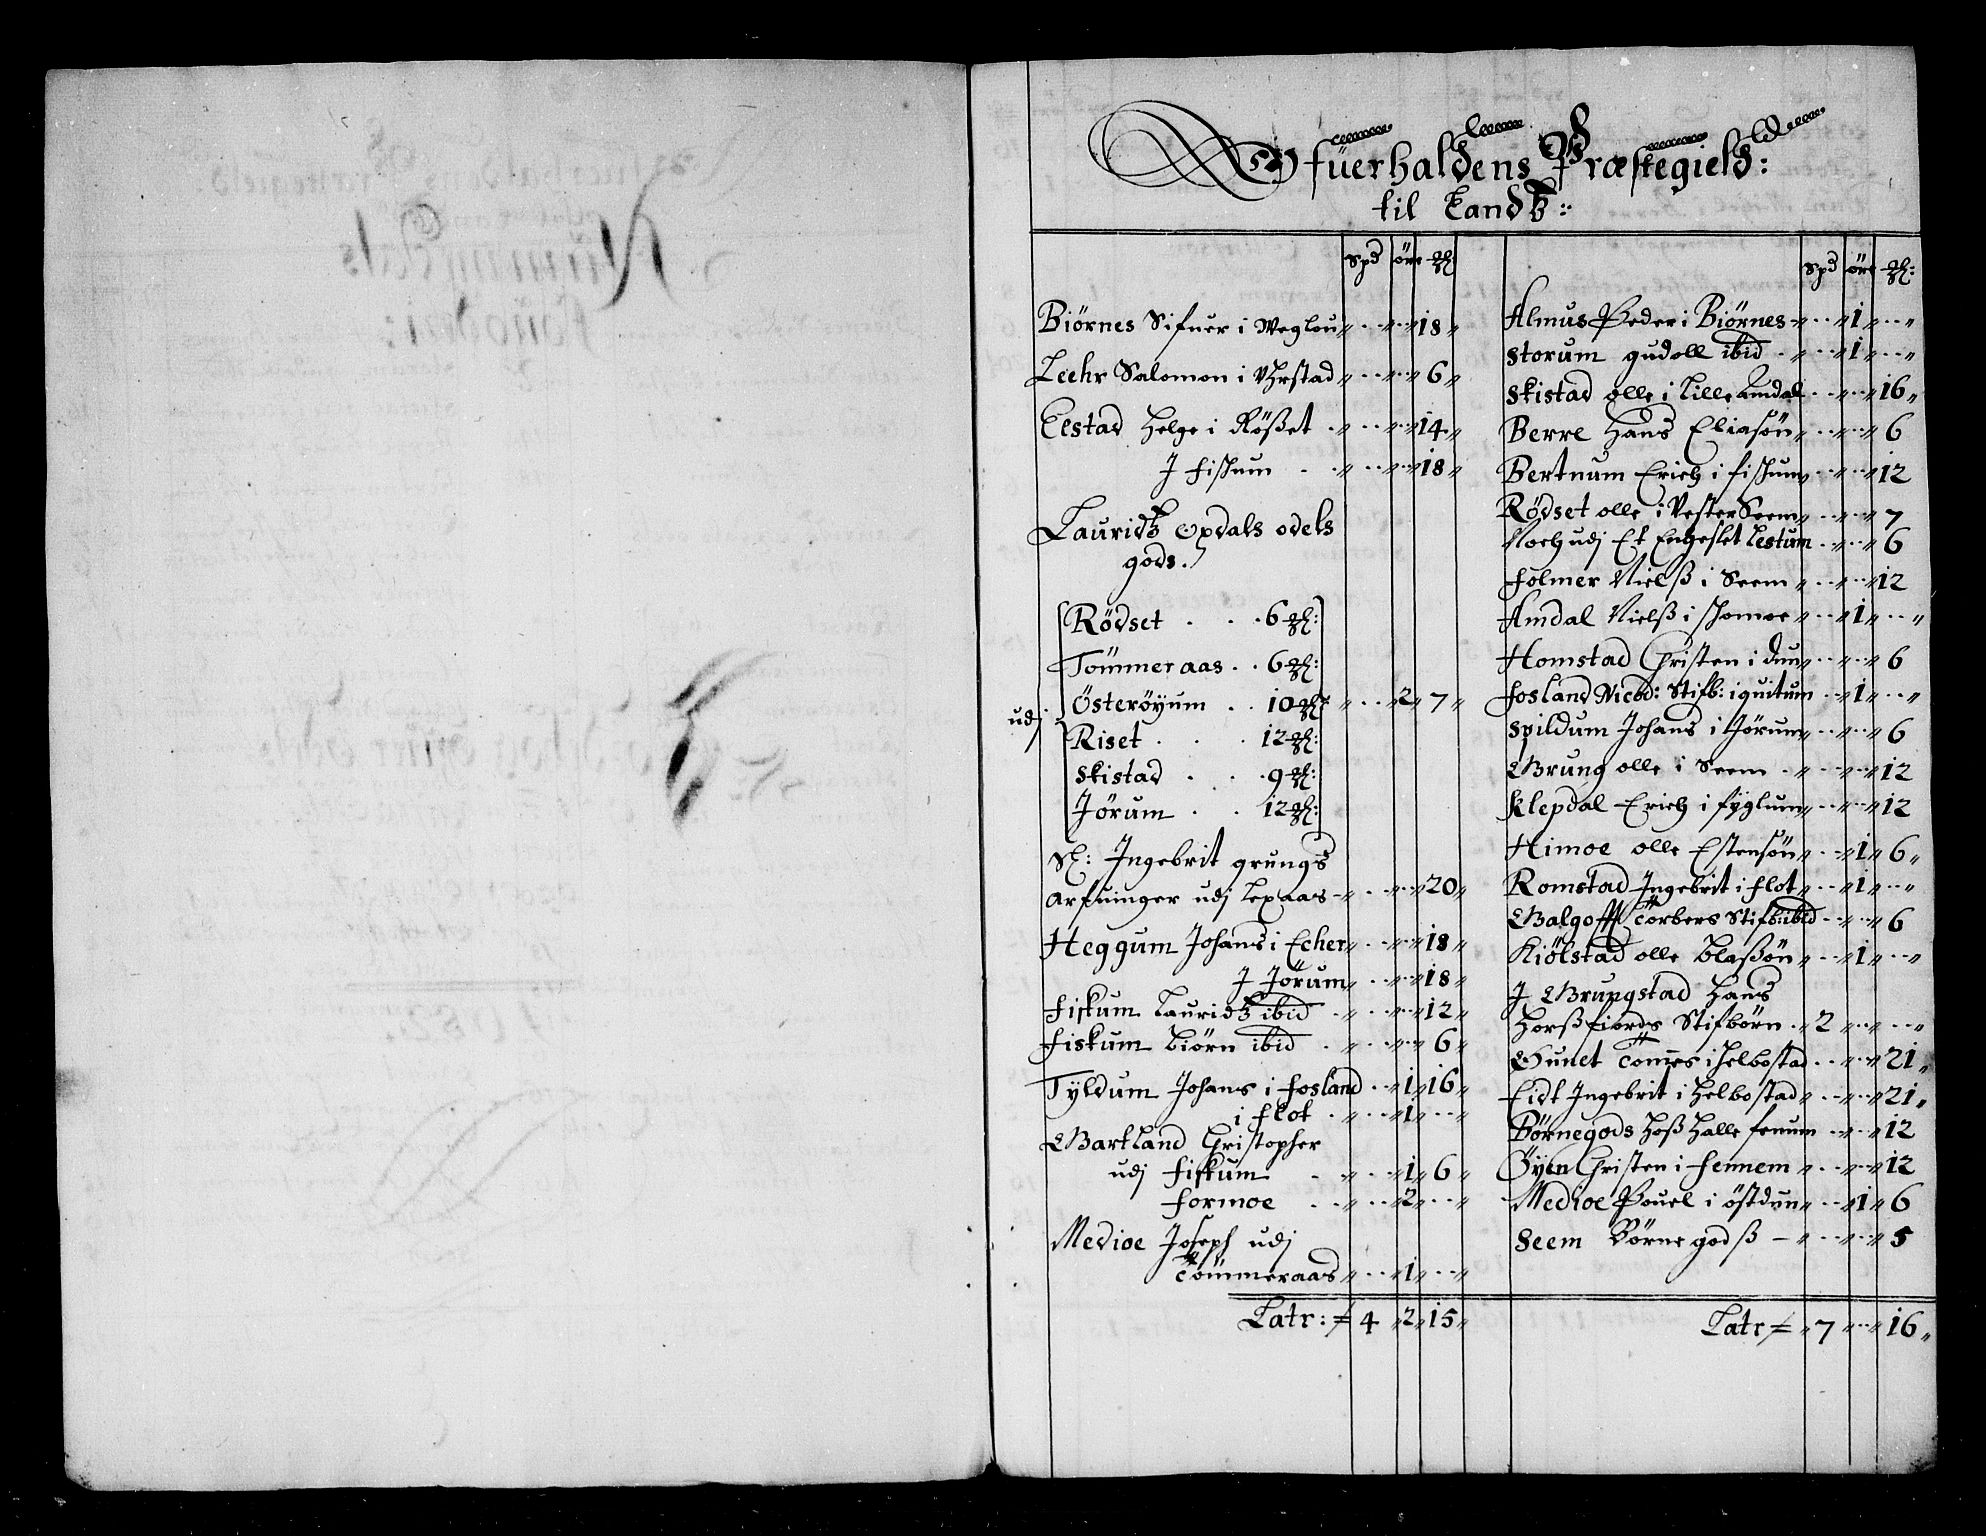 Offuerhaldens Præstegield:
til Landtz:
Spd öre ℳ
Biörnes Sifuer i Weglou „ „ 18 „
Leehr Salomon i Ybrstad „ „ 6 „
Eestad Helge i Rößet „ „ 14 „
J fishum „ „ 18 „
Lauridtz Opdals odels
gods.
Rödset 6 ℳ:
Tömmeraas 6 ℳ:
udj
Österöyum 10 ℳ „ 2 „ 7 „
Riset 12 ℳ:
Skistad 9 ℳ:
Jörum 12 ℳ:
Sl: Ingebrit grungs
arfuinger udj Lexaas „ „ 20 „
Heggum Johans i Echer „ „ 18 „
J Jörum „ „ 18 „
Fiskum Lauridtz ibid „ „ 12 „
Fiskum Biörn ibid „ „ 6 „
Tÿldum Johans i fosland „ 1 „ 16 „
i flot „ 1 „ „
Gartland Christopher
udj fiskum „ 1 „ 6 „
formoe „ 2 „ „
Medioe Joseph udj
Tömmeraas „ 1 „ „
Latr: 4 „ 2 „ 15 „
Spd öre ℳ:
Almus Peder i Biörnes „ 1 „ „
Storum gudoll ibid „ 1 „ „
Skistad olle i Lille Amdal „ „ 16 „
Berre Hans Eliasön „ „ 6
Bertnum Erich i fishum „ „ 12
Rödset olle i Vester Seem „ „ 7
Noch udj Et Engeslet Lestum „ „ 6
Folmer Nielß i Seem „ „ 12
Amdal Nielß i shomoe „ 1 „ „
Homstad Christen i dun „ „ 6
Fosland Nicod: Stifb: i quitum „ 1 „ „
Spildum Johans i Jörum „ „ 6
Grung olle i Seem „ „ 12
Klepdal Erich i fÿglum „ „ 12
Himoe olle Estensön „ 1 „ 6 „
Romstad Ingebrit i flot „ 1 „ „
Galgoftt Torbers Stifb: ibid „ „ 6
Kiölstad olle Blaßön „ 1 „ „
J Grungstad Hans
Horßfiords Stifbörn 2 „ „
Gunet Tomes i Helbostad „ „ 21 „
Eidt Ingebrit i Helbostad „ „ 21 „
Börnegods hoß Halle fenum „ „ 12
Öyen Christen i fennem „ „ 12
Medioe Pouel i östdun „ 1 „ 6
Seem Börne godß „ „ 5
Latr „ 7 „ „ 16 „